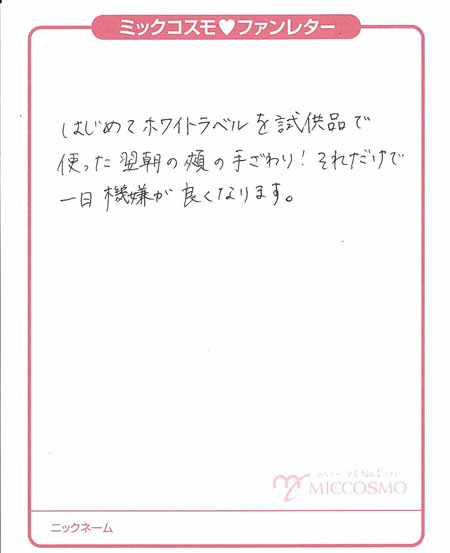 ミックコスモ♥ファンレター
はじめてホワイトラベルを試供品で
使った翌朝の頬の手ざわり！それだけで
一日機嫌が良くなります。
MICCOSMO
ニックネーム